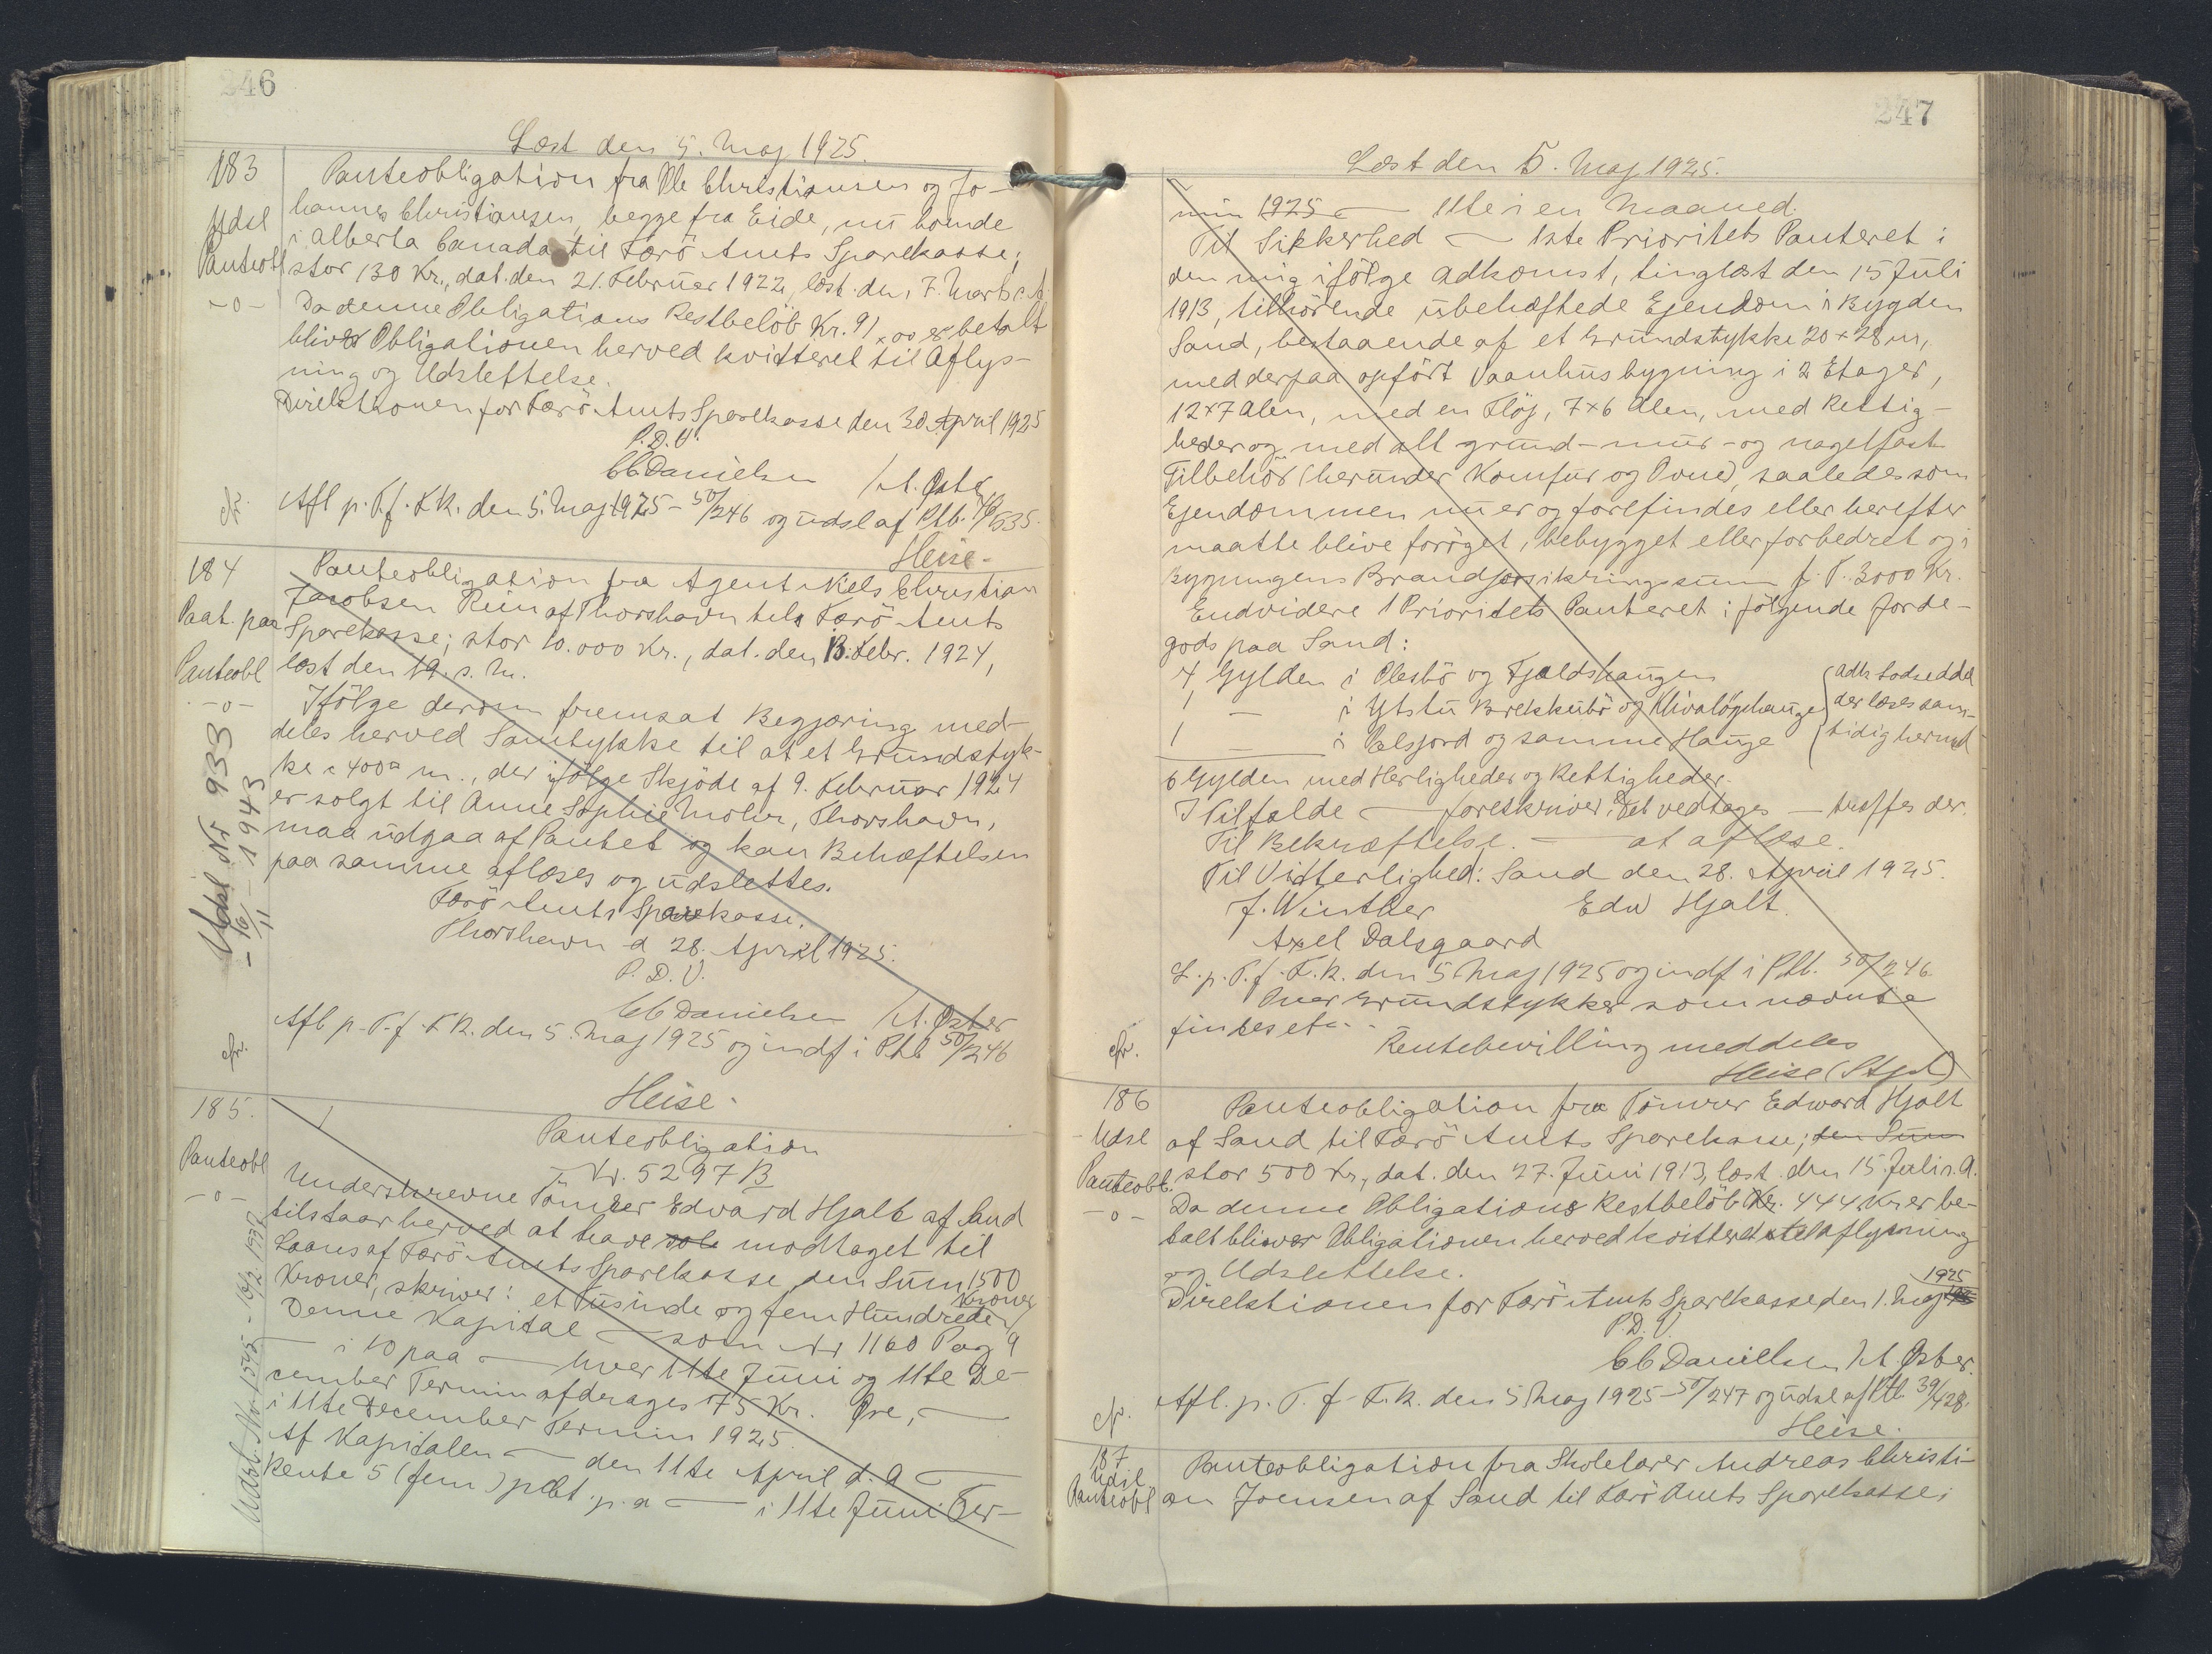 246
Læst den 5. Maj 1925.
183
Udsl
Panteobl
-o-
Panteobligation fra Ole Christiansen og Jo-
hannes Christiansen, begge fra Eide, nu boende
i Alberta Canada til Færö Amts Sparekasse;
stor 130 Kr., dat. den 21. Februar 1922, læst den 7. Marts s. A.
Da denne Obligations Restbelöb Kr. 91,00 er betalt
bliver Obligationen herved kvitteret til Aflys-
ning og Udslettelse.
Direktionen for Færö Amts Sparekasse den 30. April 1925
P.D.V.
CC Danielsen / M. Öster
cfr.
Afl p. T. f. F. R. den 5. Maj 1925 - 50/246 og udsl af Ptb. 46/635.
Heise-
184
Paat. paa
Panteobl
-o-
Udsl. Nr 933
- 16/11 - 1943
Panteobligation fra Agent Niels Christian
Jacobsen Rein af Thorshavn til Færö Amts
Sparekasse; stor 10.000 Kr., dat. den 13. Febr. 1924,
læst den 19. s. M.
Ifölge derom fremsat Begjæring med-
deles herved Samtykke til at et Grundstyk-
ke a 400 □ m., der ifölge Skjöde af 9. Februar 1924
er solgt til Anne Sophie Mohr, Thorshavn,
maa udgaa af Pantet og kan Behæftelsen
paa samme aflæses og udslettes.
Færö Amts Sparekasse.
Thorshavn d 28. April 1925.
P.D.V.
CC Danielsen / M. Öster
cfr.
Afl p. T. f. F. R. den 5. Maj 1925 og indf i Ptb 50/246
Heise.
185.
Panteobl
-o-
Udsl. Nr 1545 - 16/2. 1952
Panteobligation
Nr. 5297 B
Underskrevne Tömrer Edvard Hjalt af Sand
tilstaar herved at have modtaget til
Laans af Færö Amts Sparekasse den Sum 1500
Kroner, skriver: et Tusinde og fem Hundrede Kroner
Denne Kapital — som Nr 1160 Pag 9
— i 10 paa — hver 11te Juni og 11te De-
cember Termin afdrages 75 Kr. Öre, —
i 11te December Termin 1925.
Af Kapitalen — den 11te April d. A —
Rente 5 (fem) pCt. p. a — i 11te Juni Ter-
247
Læst den 5. Maj 1925.
min 1925 — 11te i en Maaned.
Til Sikkerhed — 1ste Prioritets Panteret i
den mig ifölge Adkomst, tinglæst den 15 Juli
1913, tilhörende ubehæftede Ejendom i Bygden
Sand, bestaaende af et Grundstykke 20 x 28 m,
med derpaa opfört Vaanhusbygning i 2 Etager,
12x7 Alen, med en Flöj, 7x6 Alen, med Rettig-
heder og med alt grund- mur- og nagelfast
Tilbehör (herunder Komfur og Ovne), saaledes som
Ejendommen nu er og forefindes eller herefter
maatte blive foröget, bebygget eller forbedret og i
Bygningens Brandforsikringssum f. T. 3000 Kr.
Endvidere 1 Prioritets Panteret i fölgende Jorde-
gods paa Sand:
4 Gylden i Olesbö og Fjaldshaugen
1 — i Ytstu Brekkubö og
1 — i og samme Hauge
Adk. Lodseddel
der læses sam-
tidig hermed
6 Gylden med Herligheder og Rettigheder.
I Tilfælde — foreskriver. Det vedtages — træffes der.
Til Bekræftelse. — at aflæse.
Til Vitterlighed: Sand den 28. April 1925.
J. Winther Edw Hjalt.
Axel Dalsgaard
L. p. T. f. F. R. den 5 Maj 1925 og indf i Ptb. 50/246
Over Grundstykker som nævnte
findes etc..
cfr.
Rentebevilling meddeles
Heise (Stpl)
186
Udsl
Panteobl.
-o-
Panteobligation fra Tömrer Edward Hjalt
af Sand til Færö Amts Sparekasse; den Sum
stor 500 Kr., dat. den 27. Juni 1913, læst den 15. Juli s. A.
Da denne Obligations Restbelöb Kr. 444, Kr er be-
talt bliver Obligationen herved kvitteret til Aflysning
og Udslettelse.
Direktionen for Færö Amts Sparekasse den 1. Maj 1925
P.D.V.
CC Danielsen / M. Öster.
cfr.
Afl. p. T. f. F. R. den 5 Maj 1925 - 50/247 og udsl af Ptb 39/428.
Heise.
187.
Udsl
Panteobl
Panteobligation fra Skolelærer Andreas Christi-
an Joensen af Sand til Færö Amts Sparekasse;